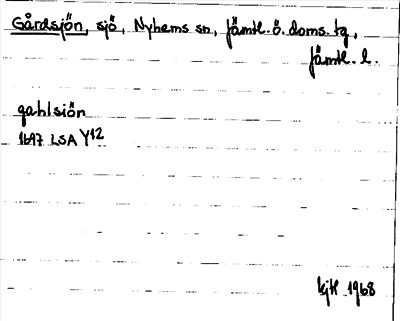 Gårdsjön, sjö, Nyhems sn, Jämtl. ö. doms. tg,
Jämtl. l.
gahlsiön
1697 LSA Y12
1968